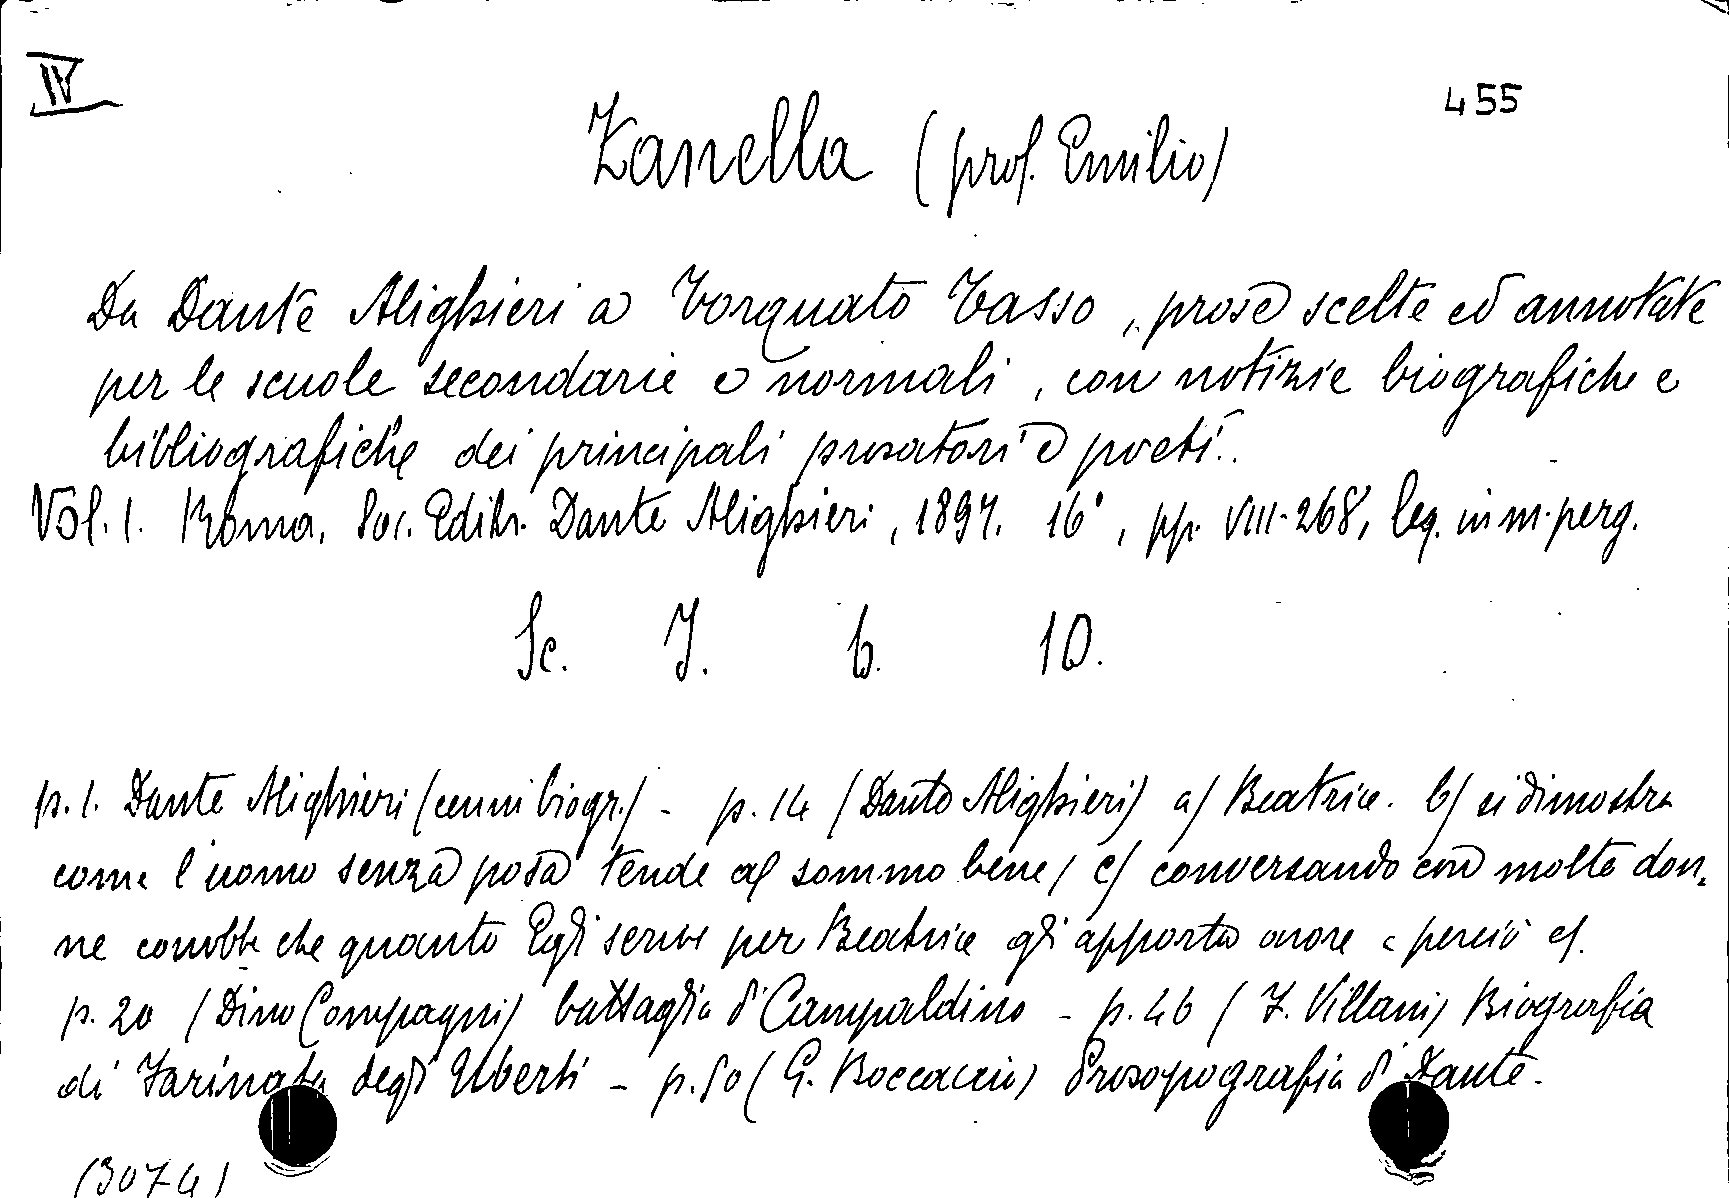 IV
455
Zanella (prof. Emilio)
Da Dante Alighieri a Torquato Tasso, prose scelte ed annotate
per le scuole secondarie e normali, con notizie biografiche e
bibliografiche dei principali prosatori e poeti..
Vol. I. Roma, Soc. Editr. Dante Alighieri, 1897. 16°, pp. VIII-268, leg. in m. perg.
Sc. J. 6. 10.
p. 1. Dante Alighieri (cenni biogr.) - p. 14 (Dante Alighieri) a) Beatrice. b) si dimostra
come l'uomo senza posa tende al sommo bene) c) conversando con molte don-
ne conobbe che quanto Egli scrive per Beatrice gli apporta onore e perciò
p. 20 (Dino Compagni) battaglia di Campaldino - p. 46 (F. Villani) Biografia
di Farinata degli Uberti - p. 50 (G. Boccaccio) Prosopografia di Dante.
(3074)